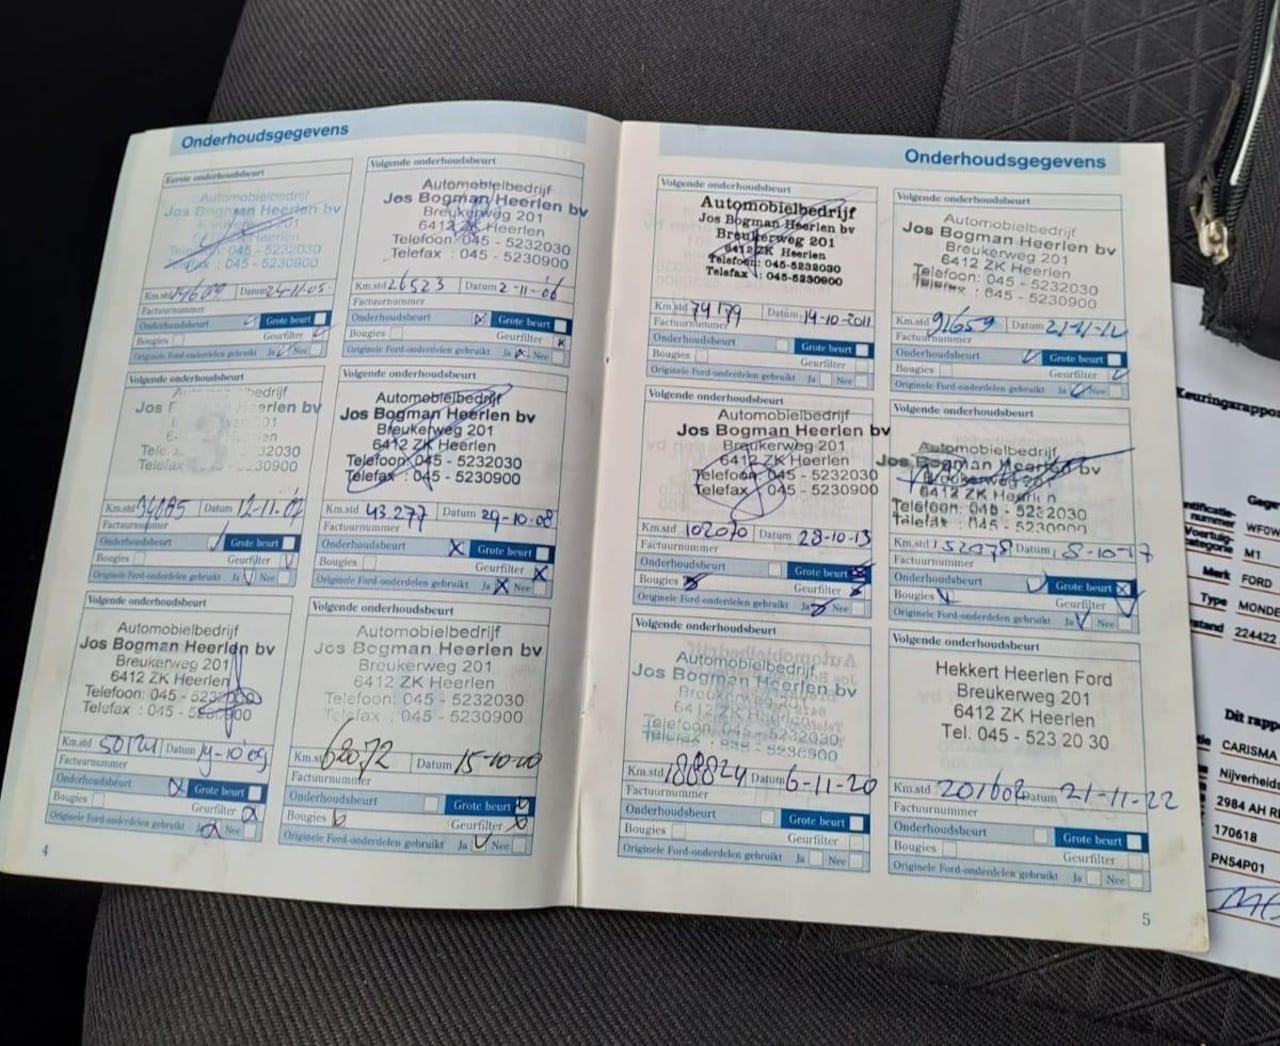 Onderhoudsgegevens
Eerste onderhoudsbeurt
Automobielbedrijf
Jos Bogman Heerlen bv
Heerlen
045 - 5232030
: 045 - 5230900
Km.std Datum 24-11-05
Factuurnummer
Onderhoudsbeurt Grote beurt
Bougies Geurfilter
Originele Ford-onderdelen gebruikt Ja Nee
Volgende onderhoudsbeurt
Automobielbedrijf
Jos Bogman Heerlen bv
Breukerweg 201
6412 ZK Heerlen
Telefoon: 045 - 5232030
Telefax : 045 - 5230900
Km.std 26523 Datum 2-11-06
Factuurnummer
Onderhoudsbeurt Grote beurt
Bougies Geurfilter
Originele Ford-onderdelen gebruikt Ja Nee
Volgende onderhoudsbeurt
bedrijf
Jos erlen bv
Tele 32030
Telefax 5230900
Km.std Datum 12-11-07
Factuurnummer
Onderhoudsbeurt Grote beurt
Bougies Geurfilter
Originele Ford-onderdelen gebruikt Ja Nee
Volgende onderhoudsbeurt
Automobielbedrijf
Jos Bogman Heerlen bv
Breukerweg 201
6412 ZK Heerlen
Telefoon: 045 - 5232030
Telefax : 045 - 5230900
Km.std 43.277 Datum 29-10-08
Factuurnummer
Onderhoudsbeurt Grote beurt
Bougies Geurfilter
Originele Ford-onderdelen gebruikt Ja Nee
Volgende onderhoudsbeurt
Automobielbedrijf
Jos Bogman Heerlen bv
Breukerweg 201
6412 ZK Heerlen
Telefoon: 045 - 5232030
Telefax : 045 - 5230900
Km.std Datum
Factuurnummer
Onderhoudsbeurt Grote beurt
Bougies Geurfilter
Originele Ford-onderdelen gebruikt Ja Nee
Volgende onderhoudsbeurt
Automobielbedrijf
Jos Bogman Heerlen bv
Breukerweg 201
6412 ZK Heerlen
Telefoon: 045 - 5232030
Telefax : 045 - 5230900
Km.std 68072 Datum 15-10-10
Factuurnummer
Onderhoudsbeurt Grote beurt
Bougies Geurfilter
Originele Ford-onderdelen gebruikt Ja Nee
4
Onderhoudsgegevens
Volgende onderhoudsbeurt
Automobielbedrijf
Jos Bogman Heerlen bv
Breukerweg 201
6412 ZK Heerlen
Telefoon: 045-5232030
Telefax : 045-5230900
Km.std 79179 Datum 14-10-2011
Factuurnummer
Onderhoudsbeurt Grote beurt
Bougies Geurfilter
Originele Ford-onderdelen gebruikt Ja Nee
Volgende onderhoudsbeurt
Automobielbedrijf
Jos Bogman Heerlen bv
Breukerweg 201
6412 ZK Heerlen
Telefoon: 045 - 5232030
Telefax : 045 - 5230900
Km.std 91659 Datum 21-11-12
Factuurnummer
Onderhoudsbeurt Grote beurt
Bougies Geurfilter
Originele Ford-onderdelen gebruikt Ja Nee
Volgende onderhoudsbeurt
Automobielbedrijf
Jos Bogman Heerlen bv
Breukerweg 201
6412 ZK Heerlen
Telefoon: 045 - 5232030
Telefax : 045 - 5230900
Km.std 102070 Datum 28-10-13
Factuurnummer
Onderhoudsbeurt Grote beurt
Bougies Geurfilter
Originele Ford-onderdelen gebruikt Ja Nee
Volgende onderhoudsbeurt
Automobielbedrijf
Jos Bogman Heerlen bv
Breukerweg 201
6412 ZK Heerlen
Telefoon: 045 - 5232030
Telefax : 045 - 5230900
Km.std 152078 Datum
Factuurnummer
Onderhoudsbeurt Grote beurt
Bougies Geurfilter
Originele Ford-onderdelen gebruikt Ja Nee
Volgende onderhoudsbeurt
Automobielbedrijf
Jos Bogman Heerlen bv
Breukerweg 201
6412 ZK Heerlen
Telefoon: 045 - 5232030
Telefax : 045 - 5230900
Km.std 188824 Datum 6-11-20
Factuurnummer
Onderhoudsbeurt Grote beurt
Bougies Geurfilter
Originele Ford-onderdelen gebruikt Ja Nee
Volgende onderhoudsbeurt
Hekkert Heerlen Ford
Breukerweg 201
6412 ZK Heerlen
Tel. 045 - 523 20 30
Km.std 201602 Datum 21-11-22
Factuurnummer
Onderhoudsbeurt Grote beurt
Bougies Geurfilter
Originele Ford-onderdelen gebruikt Ja Nee
5
Keuringsrappo
Gege
ntificatie-
nummer WF0W
Voertuig-
categorie M1
Merk FORD
Type MONDE
stand 224422
Dit rapp
CARISMA
Nijverheids
2984 AH RI
170618
PN54P01